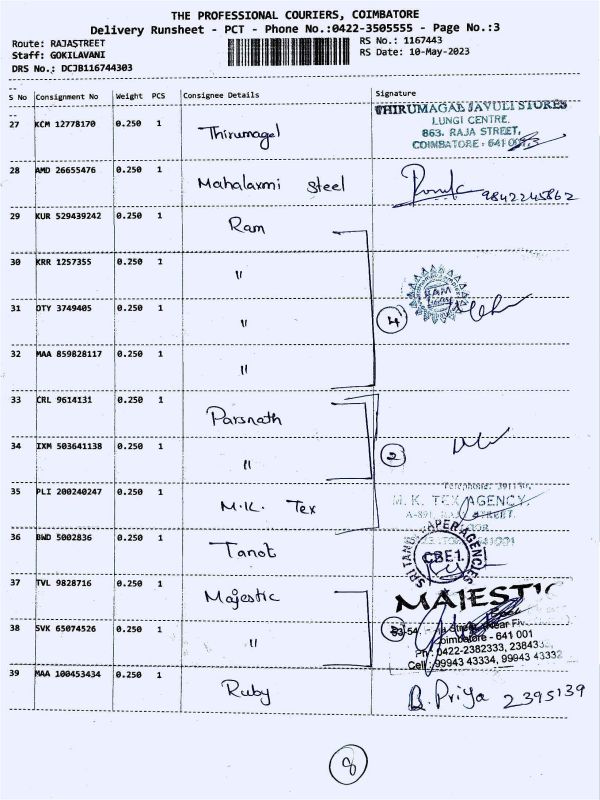 THE PROFESSIONAL COURIERS, COIMBATORE
Delivery Runsheet - PCT - Phone No.:0422-3505555 - Page No.:3
Route: RAJASTREET
RS No.: 1167443
Staff: GOKILAVANI
RS Date: 10-May-2023
DRS No.: DCJB116744303
S No Consignment No Weight PCS Consignee Details Signature
27 KCM 12778170 0.250 1 Thirumagal
THIRUMAGAL JAVULI STORES
LUNGI CENTRE,
863. RAJA STREET,
COIMBATORE : 641 001
28 AMD 26655476 0.250 1 Mahalaxmi Steel 9842245862
29 KUR 529439242 0.250 1 Ram
30 KRR 1257355 0.250 1 "
RAM
31 OTY 3749405 0.250 1 " 4
32 MAA 859828117 0.250 1 "
33 CRL 9614131 0.250 1 Parsnath
34 IXM 503641138 0.250 1 " 2
35 PLI 200240247 0.250 1 M.K. Tex
M. K. TEX AGENCY,
STREET,
641001
36 BWD 5002836 0.250 1 Tanot
SRI TANOT PAPER AGENCIES
CBE1
37 TVL 9828716 0.250 1 Majestic
MAJESTIC
38 SVK 65074526 0.250 1 "
Coimbatore - 641 001
Ph : 0422-2382333, 238433
Cell : 99943 43334, 99943 43332
39 MAA 100453434 0.250 1 Ruby B. Priya 2395139
8